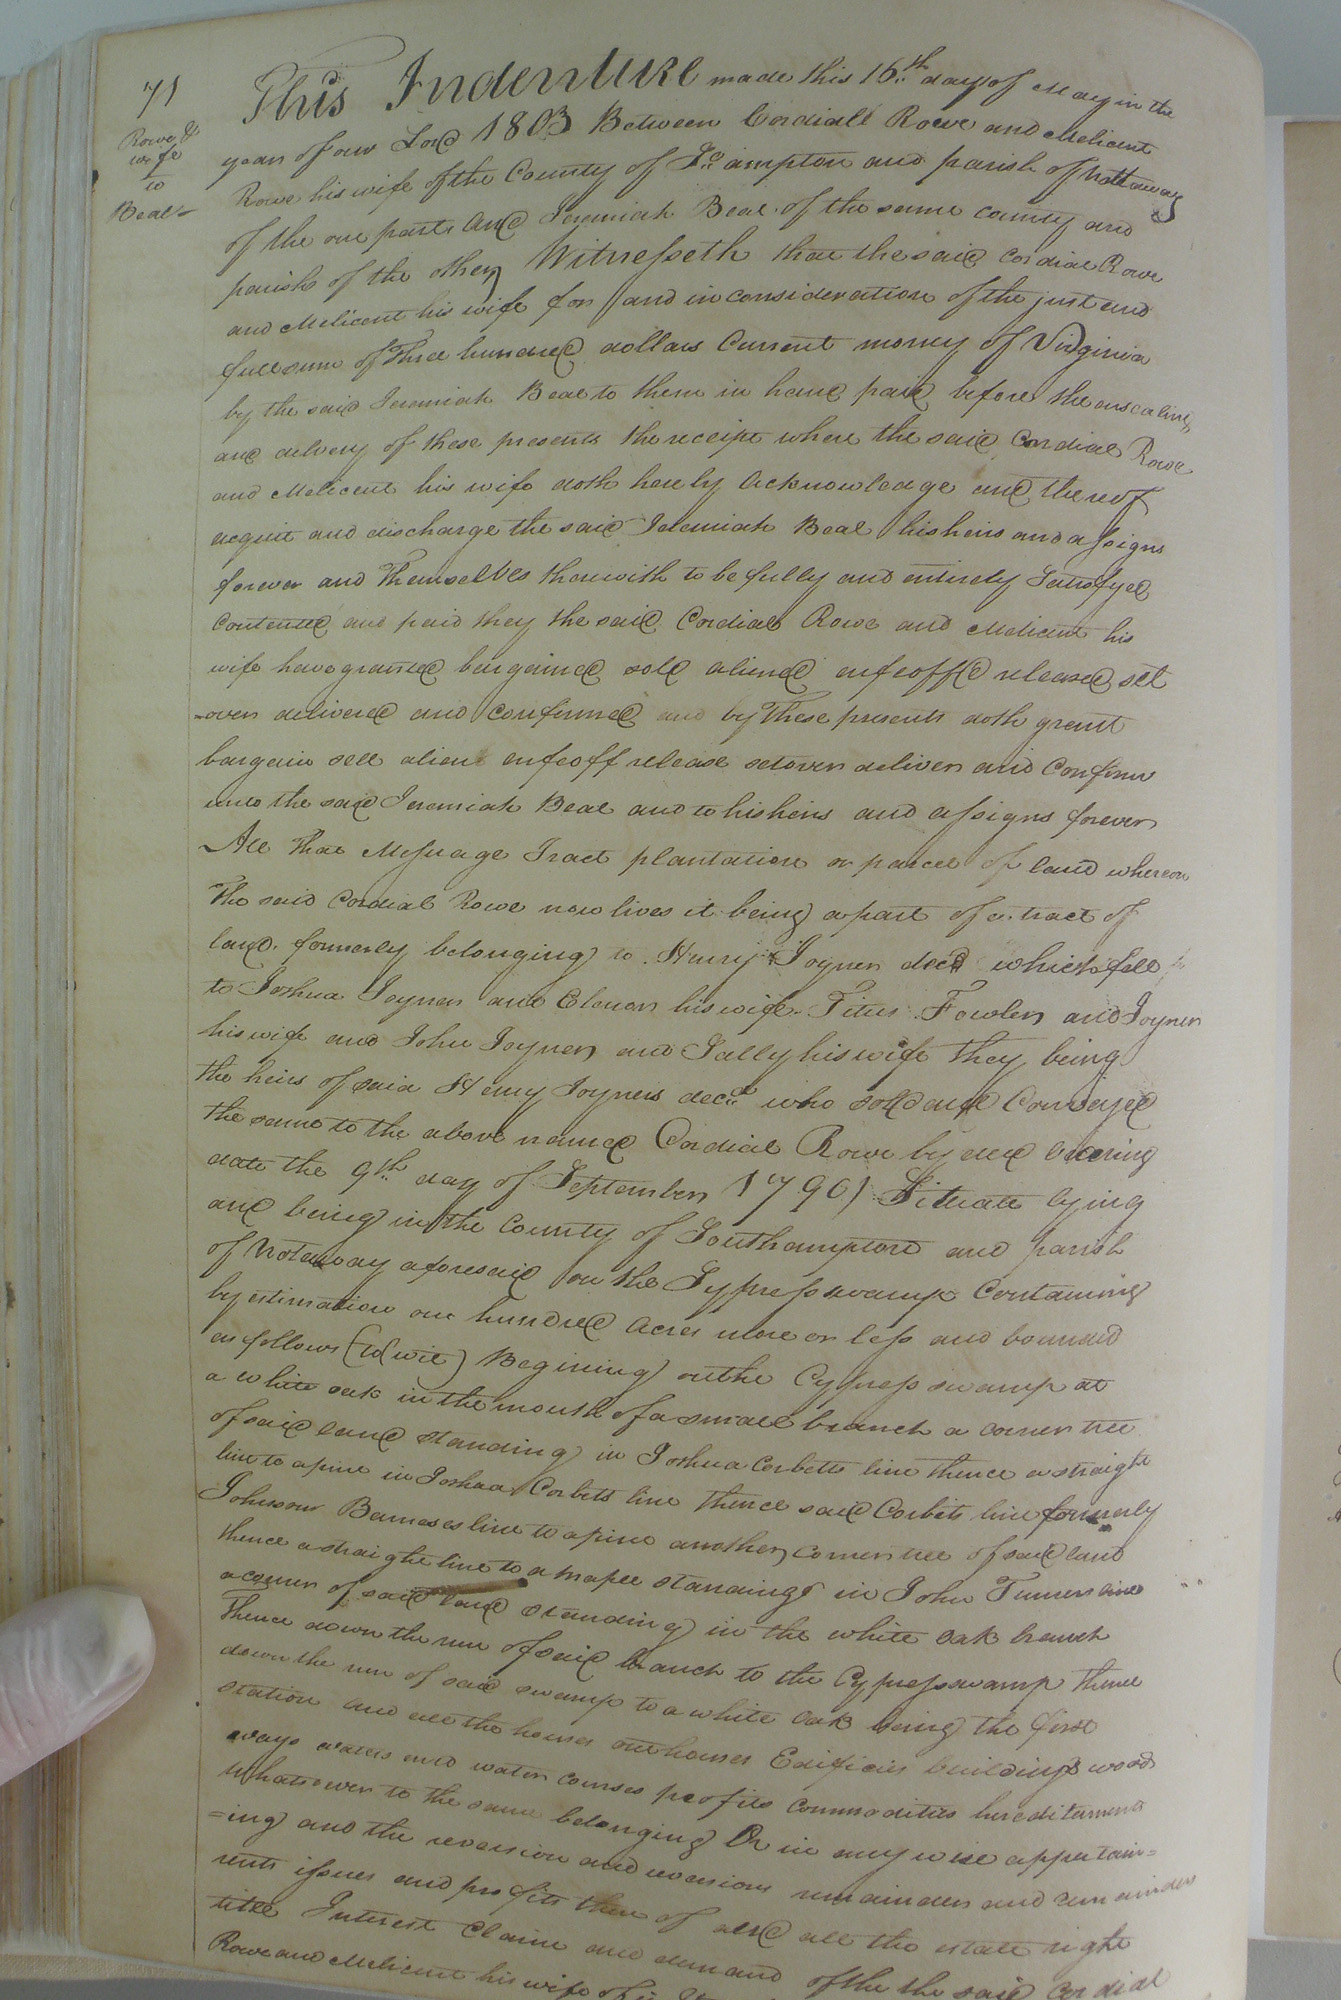 71
Rowe &
wife
to
Beal
This Indenture made this 16th day of May in the
year of our Lord 1803 Between Cordiall Rowe and Melicent
Rowe his wife of the County of So.ampton and parish of Nottaway
of the one parts and Jeremiah Beal of the same county and
parish of the other, Witnesseth that the said Cordial Rowe
and Melicent his wife for and in consideration of the just and
full sum of three hundred dollars Current money of Virginia
by the said Jeremiah Beal to them in hand paid before the ensealing
and delvery of these presents the receipt where the said Cordial Rowe
and Melicent his wife doth hereby Acknowledge and thereof
acquit and discharge the said Jeremiah Beal his heirs and assigns
forever and themselves therewith to be fully and entirely Satisfyed
Contented and paid they the said Cordial Rowe and Melicent his
wife have granted bargained sold aliened enfeoffd released set
-over delivered and confirmed and by these presents doth grant
bargain sell alien enfeoff release setover deliver and Confirm
unto the said Jeremiah Beal and to his heirs and assigns forever
All that Messuage Tract plantation or parcel of land whereon
the said Cordial Rowe now lives it being a part of a tract of
land formerly belonging to Henry Joyner decd which fell
to Joshua Joyner and Elenor his wife Titus Fowler and Joyner
his wife and John Joyner and Sally his wife they being
the heirs of said Henry Joyners decd who sold and Conveyed
the same to the above named Cordial Rowe by deed bearing
date the 9th day of September 1790 Situate lying
and being in the County of Southampton and parish
of Notaway aforesaid on the Sypress swamp Containing
by estimation one hundred Acres more or less and bounded
as follows (to wit) Begining on the Cypress swamp at
a white oak in the mouth of a small branch a corner tree
of said land standing in Joshua Corbetts line thence a straight
line to a pine in Joshua Corbits line thence said Corbits line formerly
Johnson Barneses line to a pine another corner tree of said land
thence a straight line to a maple standing in John Turners line
a corner of said land standing in the white oak branch
thence down the run of said branch to the Cypress swamp thence
down the run of said swamp to a white oak being the first
station and all the houses outhouses Edificies buildings woods
ways waters and water courses profits commodities hereditaments
whatsoever to the same belonging Or in any wise appertain=
=ing and the reversion and reversions remainder and remainders
rents issues and profits there of and all the estate right
title Interest Claim and demand of the the said Cordial
Rowe and Melicent his wife of